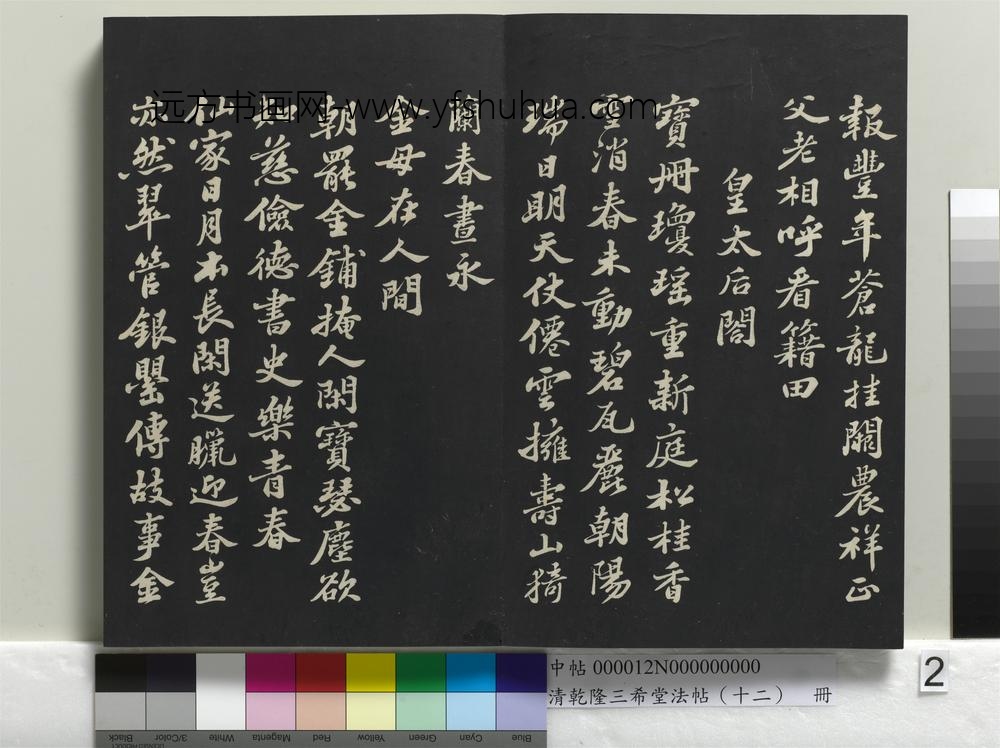 報豐年蒼龍挂闕農祥正
父老相呼看籍田
皇太后閤
寶冊瓊瑤重新庭松桂香
雪消春未動碧瓦麗朝陽
瑞日明天仗僊雲擁壽山猗
蘭春晝永
金母在人間
朝罷金鋪掩人閑寶瑟塵欲
知慈儉德書史樂青春
仙家日月本長閑送臘迎春豈
亦然翠管銀罌傳故事金
远方书画网 www.yfshuhua.com
中帖 000012N000000000
清乾隆三希堂法帖（十二） 冊
2
Blue Cyan Green Yellow Red Magenta White 3/Color Black